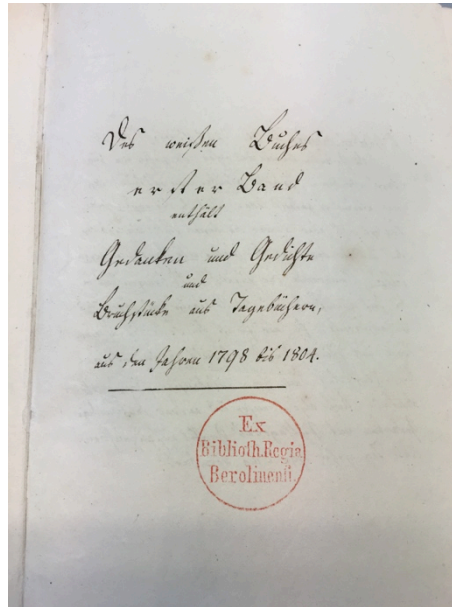 Des weißen Buches
erster Band
enthält
Gedanken und Gedichte
und
Bruchstücke aus Tagebüchern,
aus den Jahren 1798 bis 1804.
Ex
Biblioth. Regia
Berolinensi.